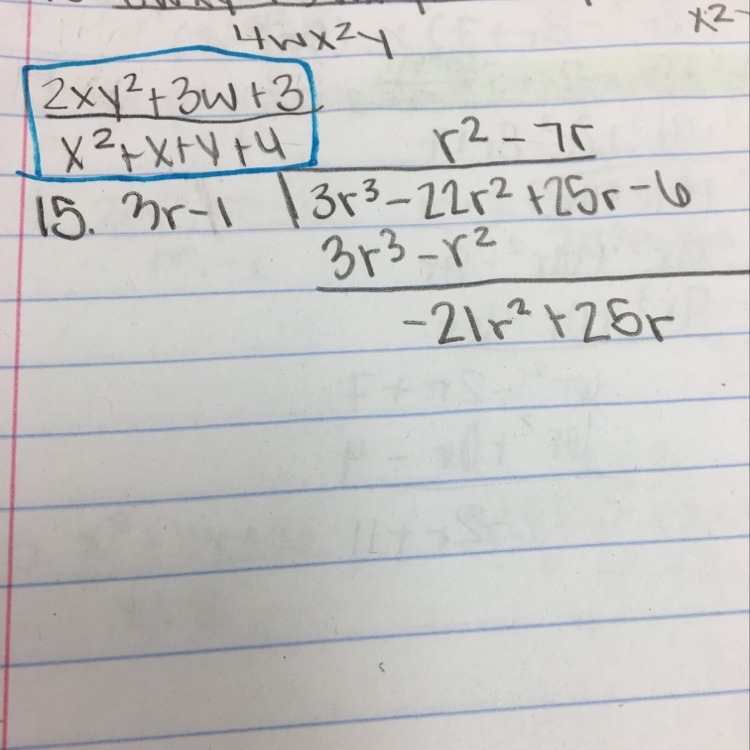 4wx²y
x²-
2xy²+3w+3
x²+x+y+4
r² - 7r
15. 3r-1 3r³-22r²+25r-6
3r³-r²
-21r²+25r